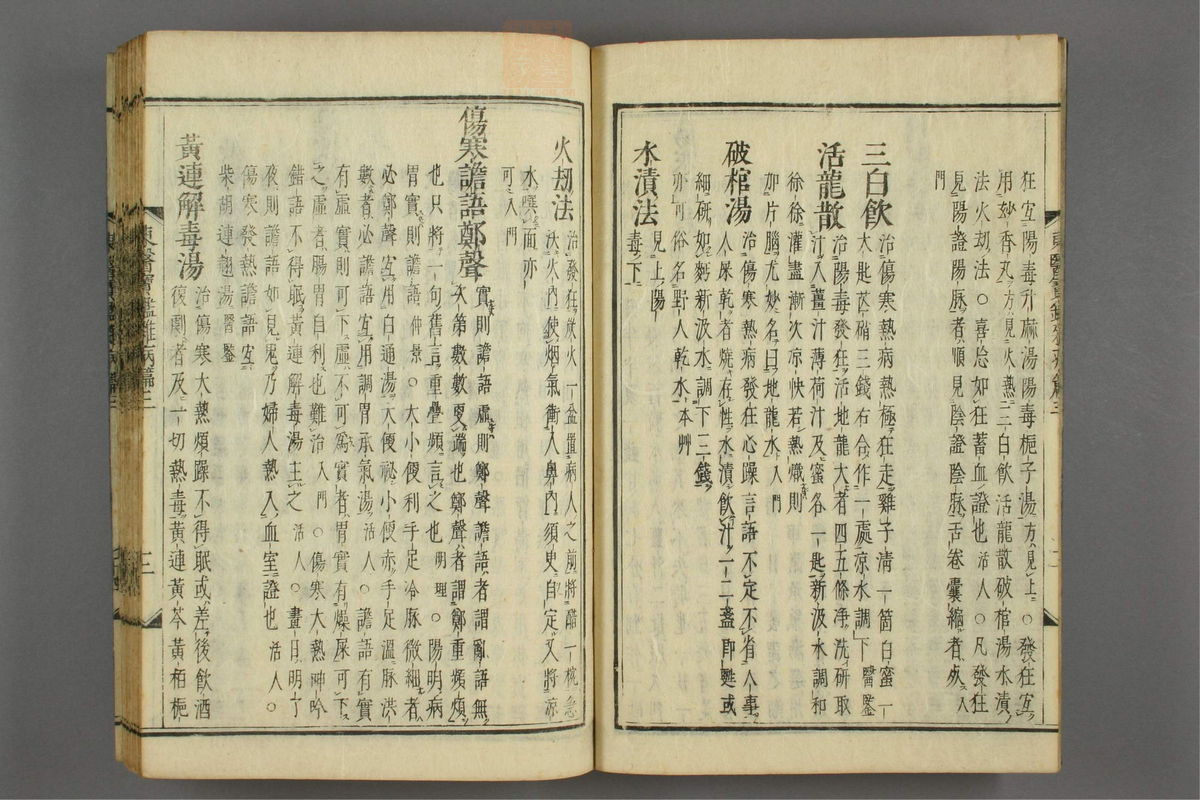 狂宜陽毒升麻湯陽毒梔子湯方見上○發狂宜
用妙香丸方見火熱三白飲活龍散破棺湯水漬
法火刧法○喜忘如狂蓄血證也活人○凡發狂
見陽證陽脉者順見陰證陰脉舌卷囊縮者死入
門
三白飲 治傷寒熱病熱極狂走雞子淸一箇白蜜一
大匙芒硝三錢右合作一處凉水調下醫鑒
活龍散 治陽毒發狂活地龍大者四五條淨洗硏取
汁入薑汁薄荷汁及蜜各一匙新汲水調和
徐徐灌盡漸次凉快若熱熾則
加片腦尤妙名曰地龍水入門
破棺湯 治傷寒熱病發狂心躁言語不定不省人事
人屎乾者燒存性水漬飮汁一二盞卽甦或
細硏如麪新汲水調下三錢
亦可俗名野人乾水本草
水漬法 見上陽
毒下
火刧法 治發狂放火一盆置病人之前將醋一椀急
沃火內使烟氣衝入鼻內須臾自定又將凉
水噀面亦
可入門
傷寒譫語鄭聲 實則譫語虛則鄭聲譫語者謂亂語無
次第數數更端也鄭聲者謂鄭重頻煩
也只將一句舊言重疊頻言之也明理○陽明病
胃實則譫語仲景○大小便利手足冷脉微細者
必鄭聲宜用白通湯大便祕小便赤手足溫脉洪
數者必譫語宜用調胃承氣湯活人○譫語有實
有虛實則可下虛不可爲實者胃實有燥屎可下
之虛者腸胃自利也難治入門○傷寒大熱呻吟
錯語不得眠黃連解毒湯主之活人○晝日明了
夜則譫語如見鬼乃婦人熱入血室證也活人○
傷寒發熱譫語宜
柴胡連翹湯醫鑒
黃連解毒湯 治傷寒大熱煩躁不得眠或差後飮酒
復劇者及一切熱毒黃連黃芩黃栢梔